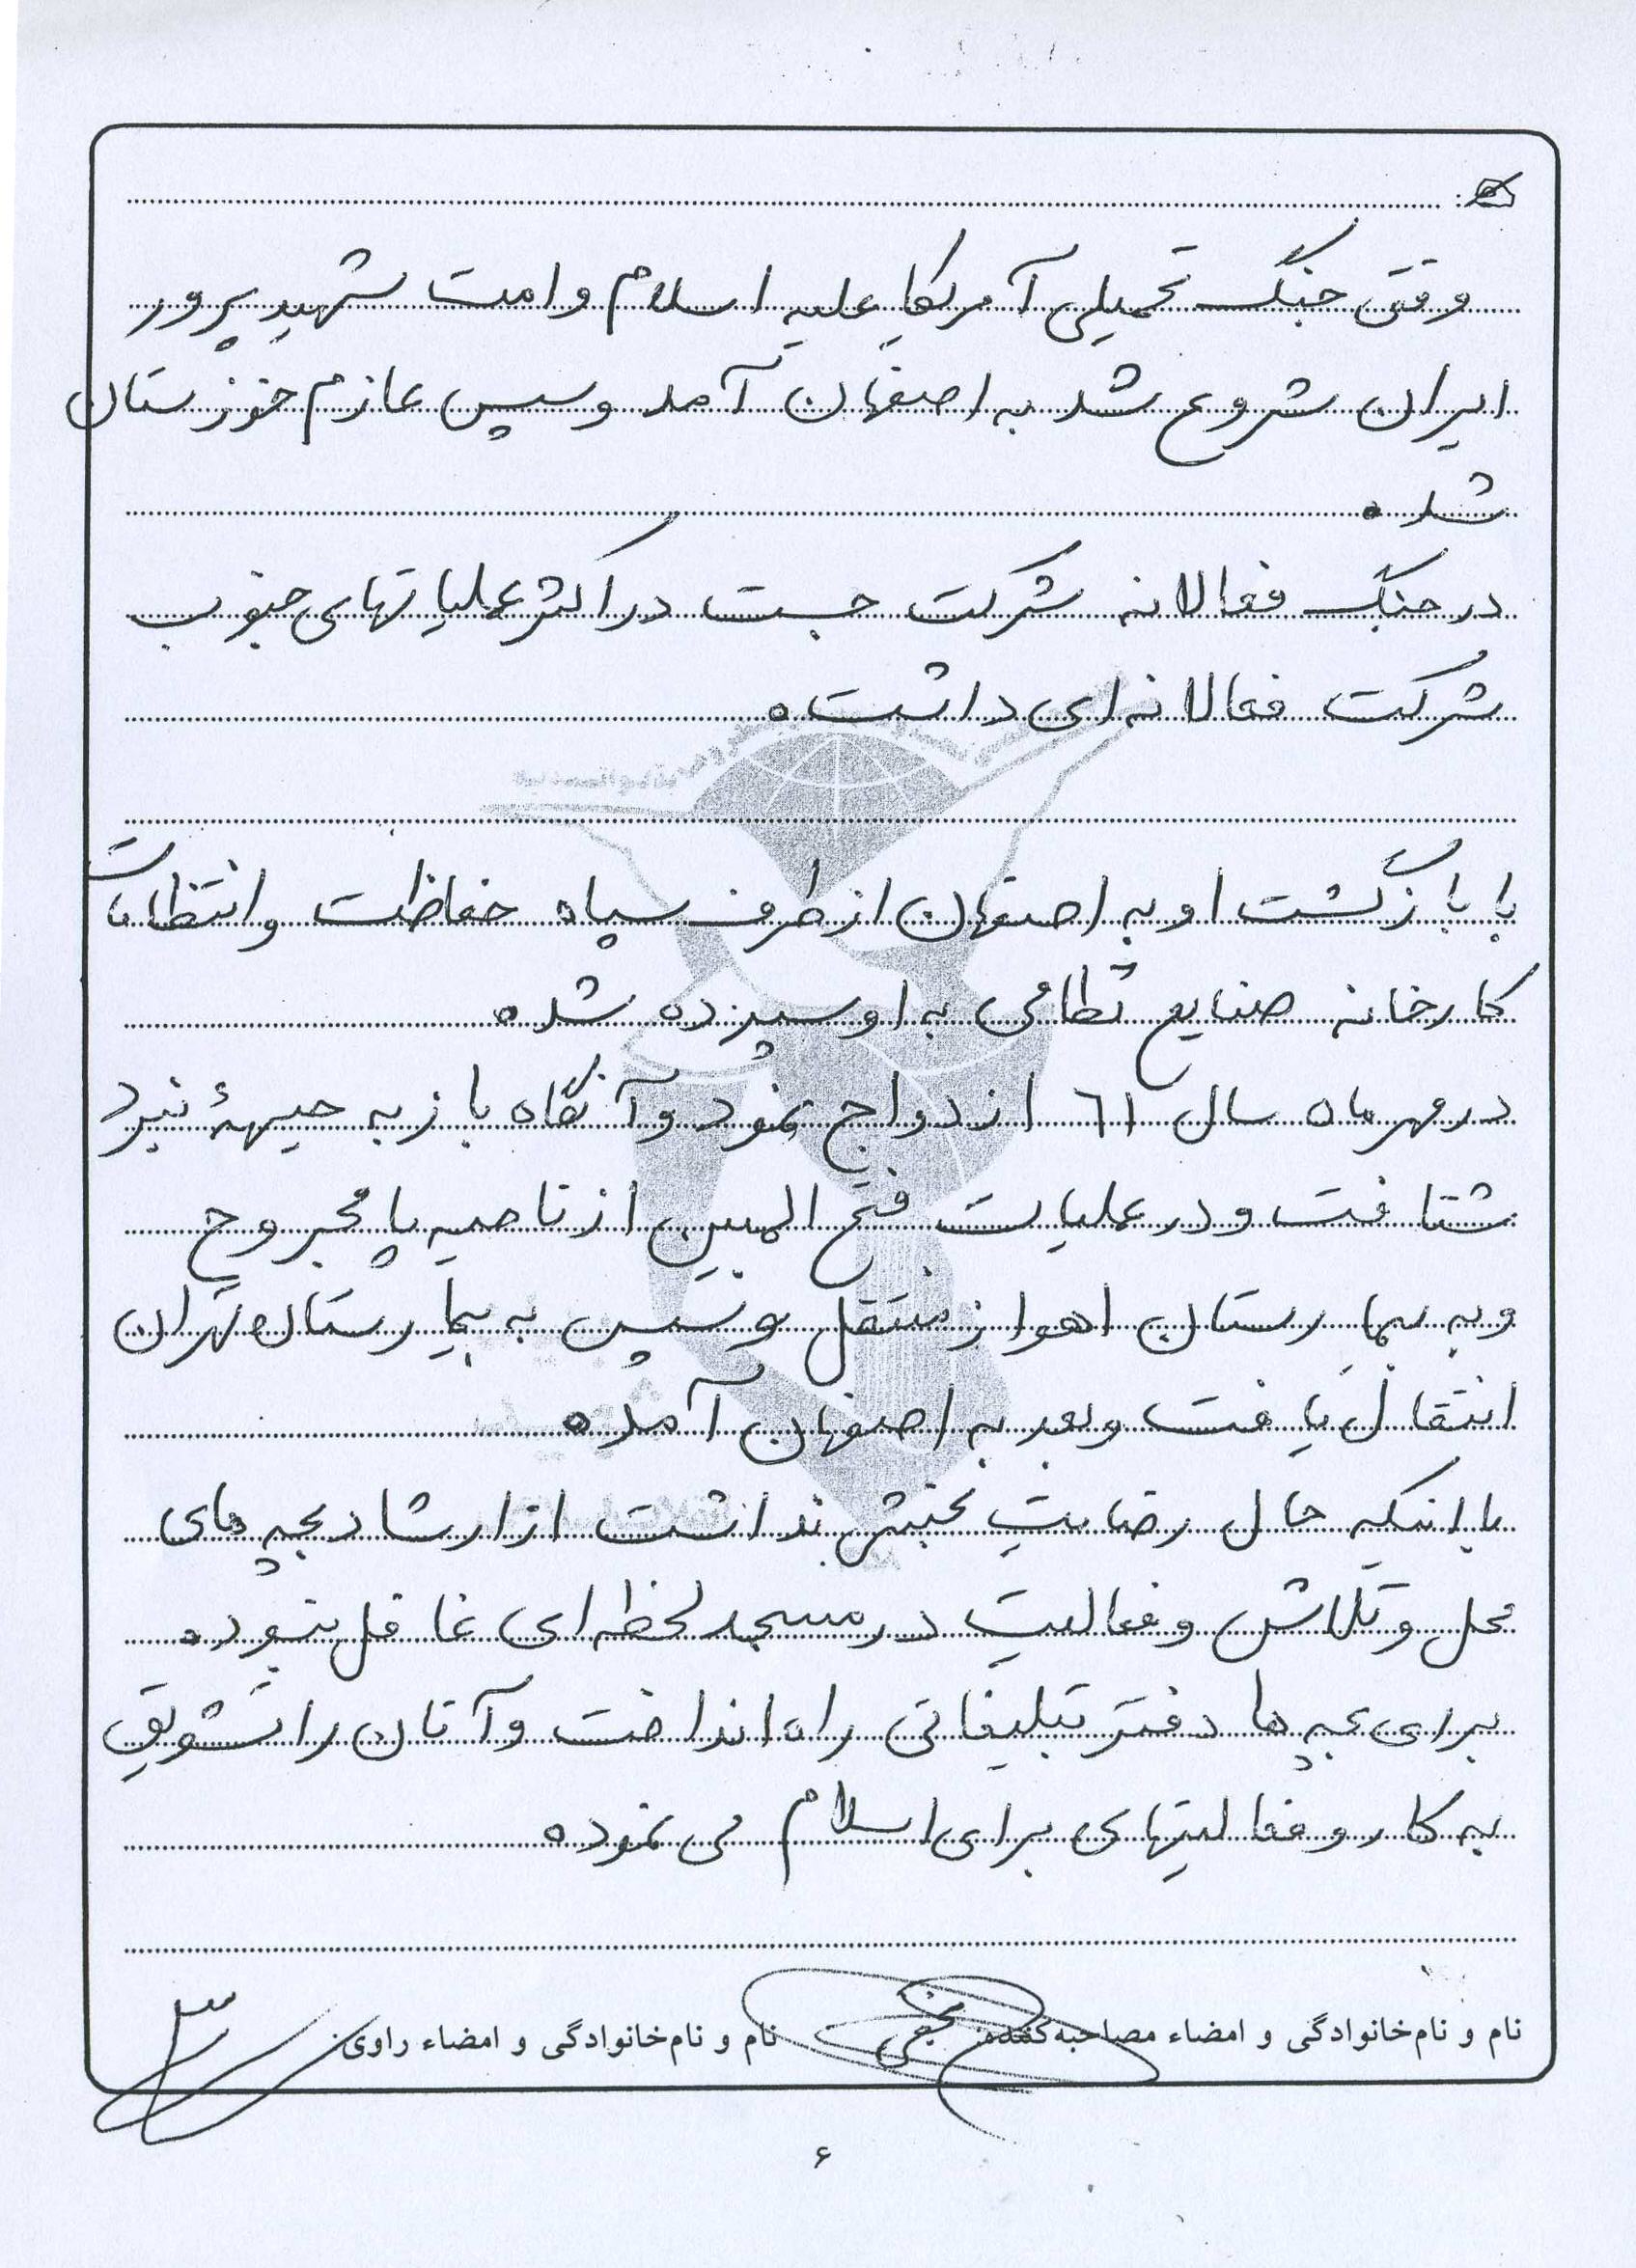 وقتی جنگ تحمیلی آمریکا علیه اسلام و امت شهید پرور
ایران شروع شد به اصفهان آمد و سپس عازم خوزستان
شد.
در جنگ فعالانه شرکت جست در اکثر عملیاتهای جنوب
شرکت فعالانه ای داشت.
با بازگشت او به اصفهان از طرف سپاه حفاظت و انتظامات
کارخانه صنایع نظامی به او سپرده شد.
در مهر ماه سال ٦١ ازدواج نمود و آنگاه باز به جبهۀ نبرد
شتافت و در عملیات فتح المبین از ناحیه پا مجروح
و به بیمارستان اهواز منتقل و سپس به بیمارستان تهران
انتقال یافت و بعد به اصفهان آمد.
با اینکه حال رضایت بخش نداشت از ارشاد بچه های
محل و تلاش و فعالیت در مسجد لحظه ای غافل نبود.
برای بچه ها دفتر تبلیغاتی راه انداخت و آنان را تشویق
به کار و فعالیتهای برای اسلام می نمود.
نام و نام‌خانوادگی و امضاء مصاحبه‌کننده:
نام و نام‌خانوادگی و امضاء راوی:
۶